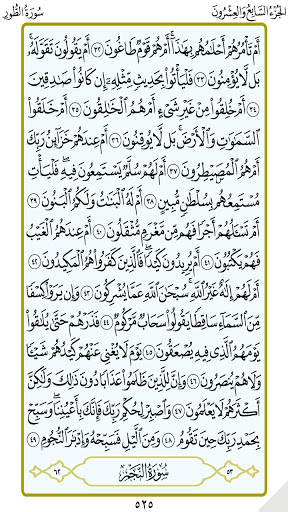 الجزء السابع والعشرون سورة الطور
أَمْ تَأْمُرُهُمْ أَحْلَٰمُهُم بِهَٰذَآ أَمْ هُمْ قَوْمٌ طَاغُونَ ٣٢ أَمْ يَقُولُونَ تَقَوَّلَهُۥ
بَل لَّا يُؤْمِنُونَ ٣٣ فَلْيَأْتُوا۟ بِحَدِيثٍ مِّثْلِهِۦٓ إِن كَانُوا۟ صَٰدِقِينَ
٣٤ أَمْ خُلِقُوا۟ مِنْ غَيْرِ شَىْءٍ أَمْ هُمُ ٱلْخَٰلِقُونَ ٣٥ أَمْ خَلَقُوا۟
ٱلسَّمَٰوَٰتِ وَٱلْأَرْضَ بَل لَّا يُوقِنُونَ ٣٦ أَمْ عِندَهُمْ خَزَآئِنُ رَبِّكَ
أَمْ هُمُ ٱلْمُصَۣيْطِرُونَ ٣٧ أَمْ لَهُمْ سُلَّمٌ يَسْتَمِعُونَ فِيهِ فَلْيَأْتِ
مُسْتَمِعُهُم بِسُلْطَٰنٍ مُّبِينٍ ٣٨ أَمْ لَهُ ٱلْبَنَٰتُ وَلَكُمُ ٱلْبَنُونَ ٣٩
أَمْ تَسْـَٔلُهُمْ أَجْرًا فَهُم مِّن مَّغْرَمٍ مُّثْقَلُونَ ٤٠ أَمْ عِندَهُمُ ٱلْغَيْبُ
فَهُمْ يَكْتُبُونَ ٤١ أَمْ يُرِيدُونَ كَيْدًا فَٱلَّذِينَ كَفَرُوا۟ هُمُ ٱلْمَكِيدُونَ ٤٢
أَمْ لَهُمْ إِلَٰهٌ غَيْرُ ٱللَّهِ سُبْحَٰنَ ٱللَّهِ عَمَّا يُشْرِكُونَ ٤٣ وَإِن يَرَوْا۟ كِسْفًا
مِّنَ ٱلسَّمَآءِ سَاقِطًا يَقُولُوا۟ سَحَابٌ مَّرْكُومٌ ٤٤ فَذَرْهُمْ حَتَّىٰ يُلَٰقُوا۟
يَوْمَهُمُ ٱلَّذِى فِيهِ يُصْعَقُونَ ٤٥ يَوْمَ لَا يُغْنِى عَنْهُمْ كَيْدُهُمْ شَيْـًٔا
وَلَا هُمْ يُنصَرُونَ ٤٦ وَإِنَّ لِلَّذِينَ ظَلَمُوا۟ عَذَابًا دُونَ ذَٰلِكَ وَلَٰكِنَّ
أَكْثَرَهُمْ لَا يَعْلَمُونَ ٤٧ وَٱصْبِرْ لِحُكْمِ رَبِّكَ فَإِنَّكَ بِأَعْيُنِنَا وَسَبِّحْ
بِحَمْدِ رَبِّكَ حِينَ تَقُومُ ٤٨ وَمِنَ ٱلَّيْلِ فَسَبِّحْهُ وَإِدْبَٰرَ ٱلنُّجُومِ ٤٩
٥٣ سُورَةُ ٱلنَّجْمِ ٦٢
٥٢٥